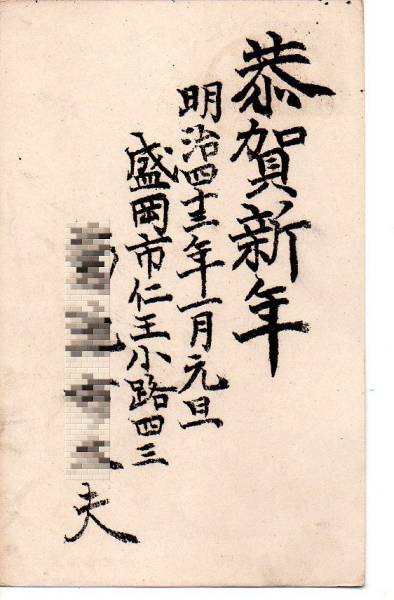 恭賀新年
明治四十三年一月元旦
盛岡市仁王小路四三
夫